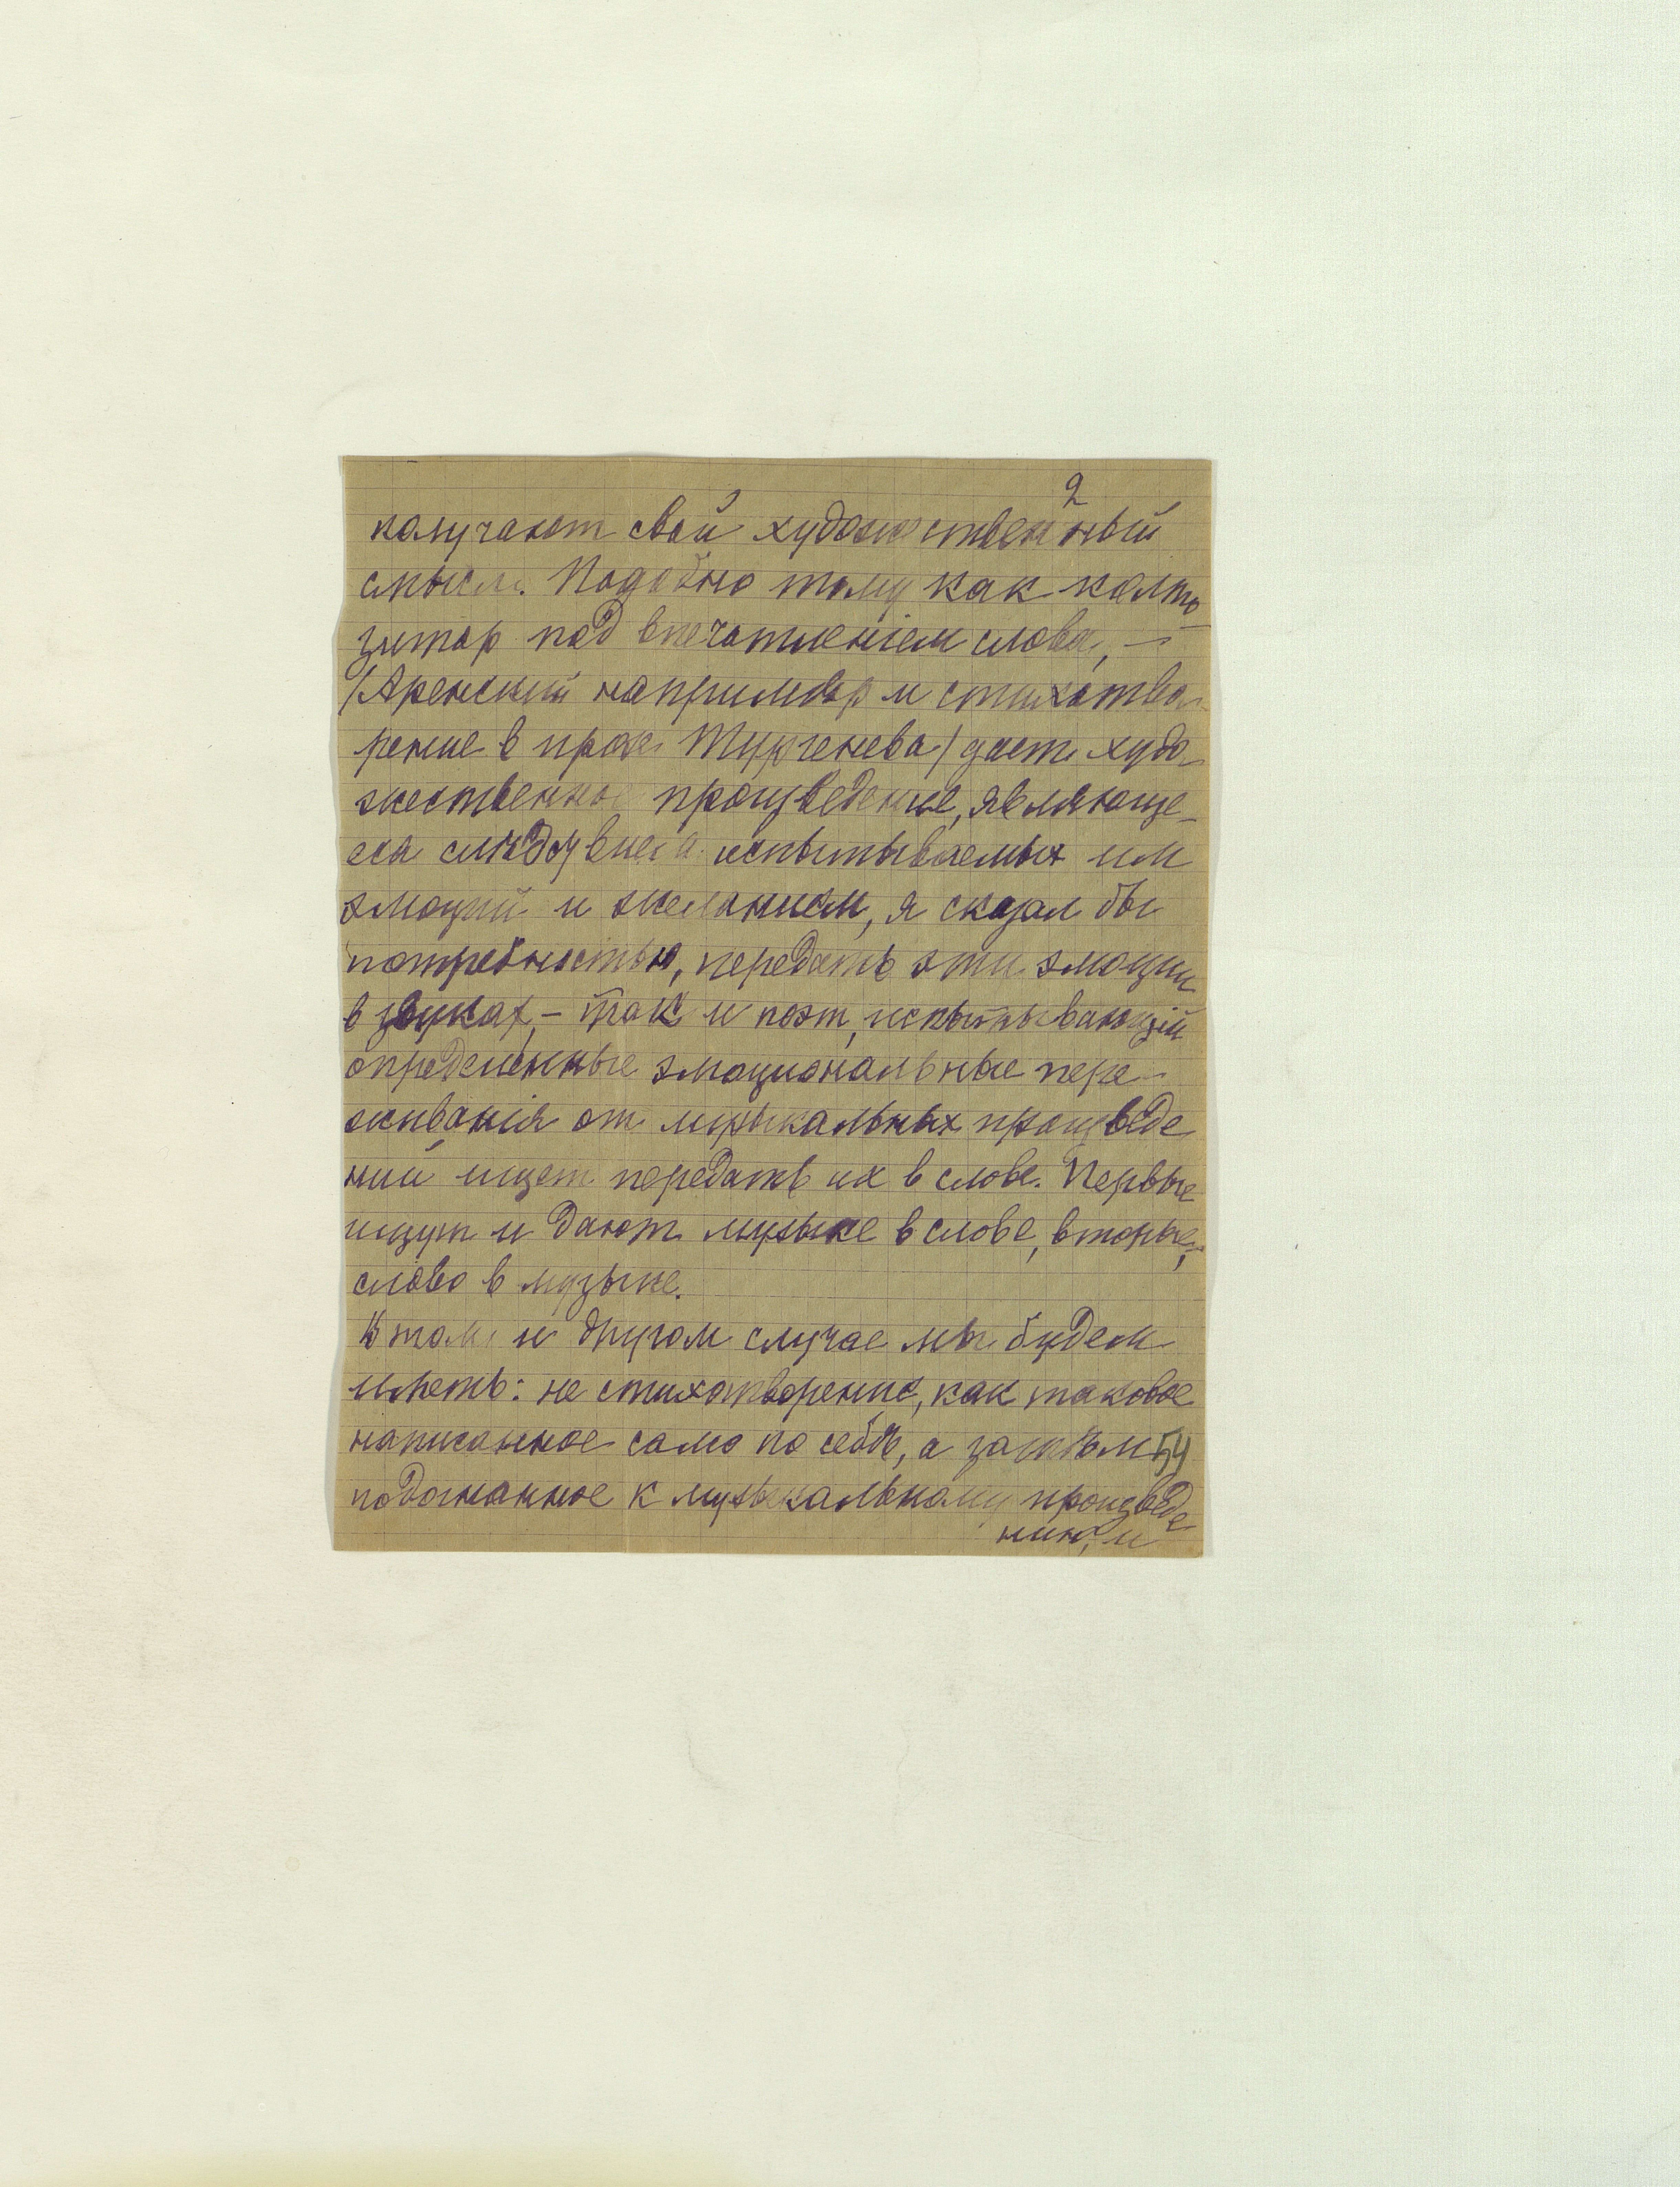 2
получают свой художественный
смысл. Подобно тому как компо
зитор под впечатленіем слова, —
/Аренский например и стихотво-
рение в прозе Тургенева/ дает худо-
жественное произведение, являюще-
еся следствием испытываемых им
эмоций и желанием, я сказал бы
потребностью, передать эти эмоции
в звуках, — так и поэт, испытывающій
определенные эмоциональные пере-
живанія от музыкальных произведе
ний ищет передать их в слове. Первые
ищут и дают музыке в слове, вторые,
слово в музыке.
В том и другом случае мы будем
иметь: не стихотворение, как таковое
написанное само по себѣ, а затѣм 54
подогнанное к музыкальному произведе
нию, и